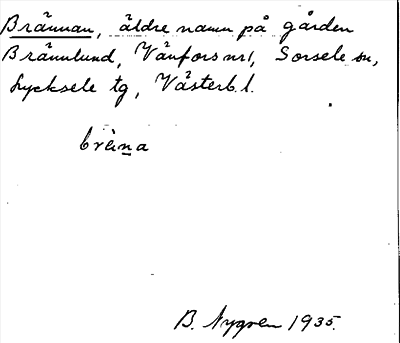 Brännan, äldre namn på gården
Brännlund, Vänfors nr1, Sorsele sn,
Lycksele tg, Västerb.l.
bräna
B. Nygren 1935.